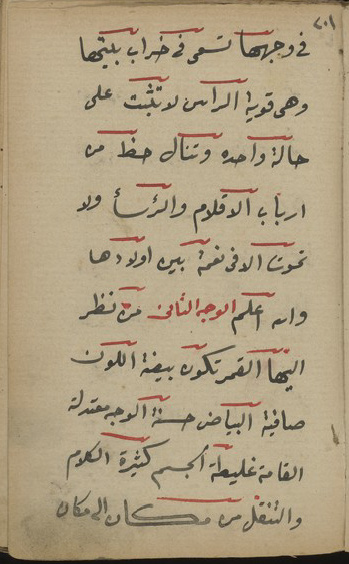 ٢٠١
في وجهها تسعى في خراب بيتها
وهى قوية الراس لا تثبت على
حالة واحده وتنال حظ من
ارباب الاقلام والرؤسأ ولا
تموت الا في نعمة بين اولادها
والله اعلم الوجه الثانى من نظر
اليها القمر تكون بيضة اللون
صافية البياض حسنة الوجه معتدلة
القامة غليظة الجسم كثيرة الكلام
والتنقل من مكان الى مكان